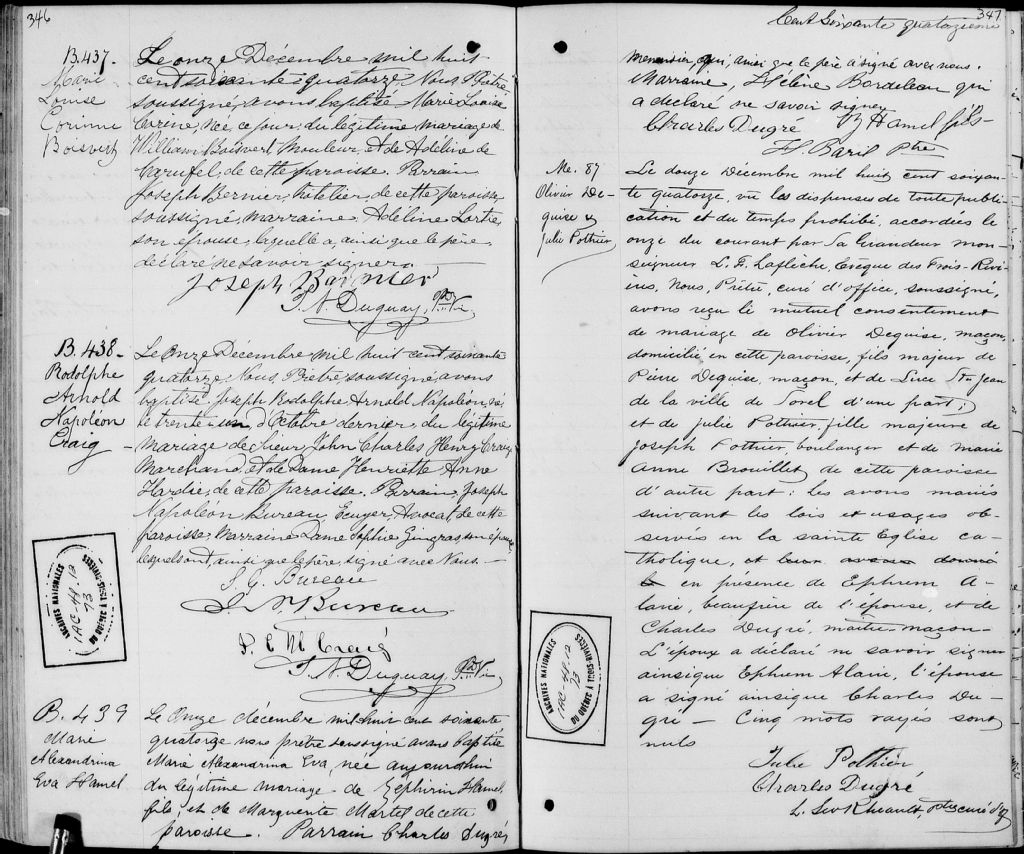 346
B.437.
Marie
Louise
Corinne
Boisvert
Le onze Décembre mil huit
cent soixante quatorze, Nous Prêtre
soussigné, avons baptisé Marie Louise
Corine, née ce jour, du légitime mariage de
William Boisvert Mouleur, et de Adeline de
Carufel, de cette paroisse. Parrain
Joseph Bernier, hôtelier, de cette paroisse,
soussigné, Marraine, Adeline
son épouse, laquelle a, ainsi que le père
déclaré ne savoir signer.
Joseph Barnier
T. N. Duguay, Ptre Vic.
B. 438-
Rodolphe
Arnold
Napoléon
Craig
Le Onze Décembre mil huit cent soixante
quatorze, Nous, Prêtre soussigné avons
baptisé Joseph Rodolphe Arnold Napoléon, né
le trente un d'Octobre dernier, du légitime
mariage de Sieur John Charles Henry Craig,
Marchand, et de Dame Henriette Anne
Hardie, de cette paroisse. Parrain, Joseph
Napoléon Bureau, Ecuyer, Avocat, de cette
paroisse. Marraine Dame Sophie Gingras, son épouse,
lesquels ont, ainsi que le père, signé avec Nous. —
S. G. Bureau
J. N. Bureau
J. C. H. Craig
T. N. Duguay, Ptre Vic.
ARCHIVES NATIONALES
1AC-44-12
73
DU QUÉBEC À TROIS-RIVIÈRES
B. 439
Marie
Alexandrina
Eva Hamel
Le Onze décembre mil huit cent soixante
quatorze nous prêtre soussigné avons baptisé
Marie Alexandrina Eva, née aujourd'hui
du légitime mariage de Zephirin Hamel,
fils, et de Marguerite Martel de cette
paroisse. Parrain Charles Dugré,
347
Cent soixante quatorzième
menuisier qui, ainsi que le père a signé avec nous.
Marraine, Hélène Bordeleau qui
a déclaré ne savoir signer
Charles Dugré Z Hamel fils
H. Baril Ptre
Me. 87
Olivier De-
guise &
Julie Pothier
Le douze Décembre mil huit cent soixan-
te quatorze, vu les dispenses de toute publi-
cation et du temps prohibé, accordées le
onze du courant par Sa Grandeur mon-
seigneur L. F. Laflèche, Evêque des Trois-Rivi-
ères, Nous, Prêtre, curé d'office, soussigné,
avons reçu le mutuel consentement
de mariage de Olivier Deguise, maçon,
domicilié en cette paroisse, fils majeur de
Pierre Deguise, maçon, et de Luce St. Jean
de la ville de Sorel d'une part;
et de Julie Pothier, fille majeure de
Joseph Pothier, boulanger et de Marie
Anne Brouillet, de cette paroisse
d'autre part: les avons mariés
suivant les lois et usages ob-
servés en la sainte Eglise ca-
tholique, et leur avons donné
la en présence de Ephrem A-
larie, beaufrère de l'épouse, et de
Charles Dugré, maître-maçon-
L'époux a déclaré ne savoir signer
ainsique Ephrem Alarie, l'épouse
a signé ainsique Charles Du-
gré — Cinq mots rayés sont
nuls
ARCHIVES NATIONALES
1AC-44-12
73
DU QUÉBEC À TROIS-RIVIÈRES
Julie Pothier
Charles Dugré
L. Sev. Rheault, Ptre curé d'off